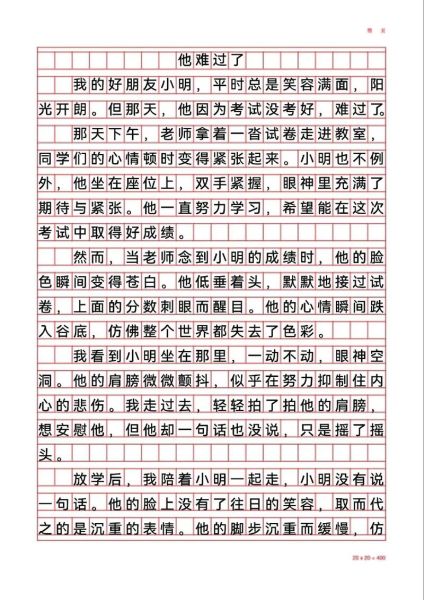 他难过了
我的好朋友小明，平时总是笑容满面，阳
光开朗。但那天，他因为考试没考好，难过了。
那天下午，老师拿着一沓试卷走进教室，
同学们的心情顿时变得紧张起来。小明也不例
外，他坐在座位上，双手紧握，眼神里充满了
期待与紧张。他一直努力学习，希望能在这次
考试中取得好成绩。
然而，当老师念到小明的成绩时，他的脸
色瞬间变得苍白。他低垂着头，默默地接过试
卷，上面的分数刺眼而醒目。他的心情瞬间跌
入谷底，仿佛整个世界都失去了色彩。
我看到小明坐在那里，一动不动，眼神空
洞。他的肩膀微微颤抖，似乎在努力抑制住内
心的悲伤。我走过去，轻轻拍了拍他的肩膀，
想安慰他，但他却一句话也没说，只是摇了摇
头。
放学后，我陪着小明一起走，小明没有说
一句话。他的脸上没有了往日的笑容，取而代
之的是沉重的表情。他的脚步沉重而缓慢，仿
20 x 20 = 400